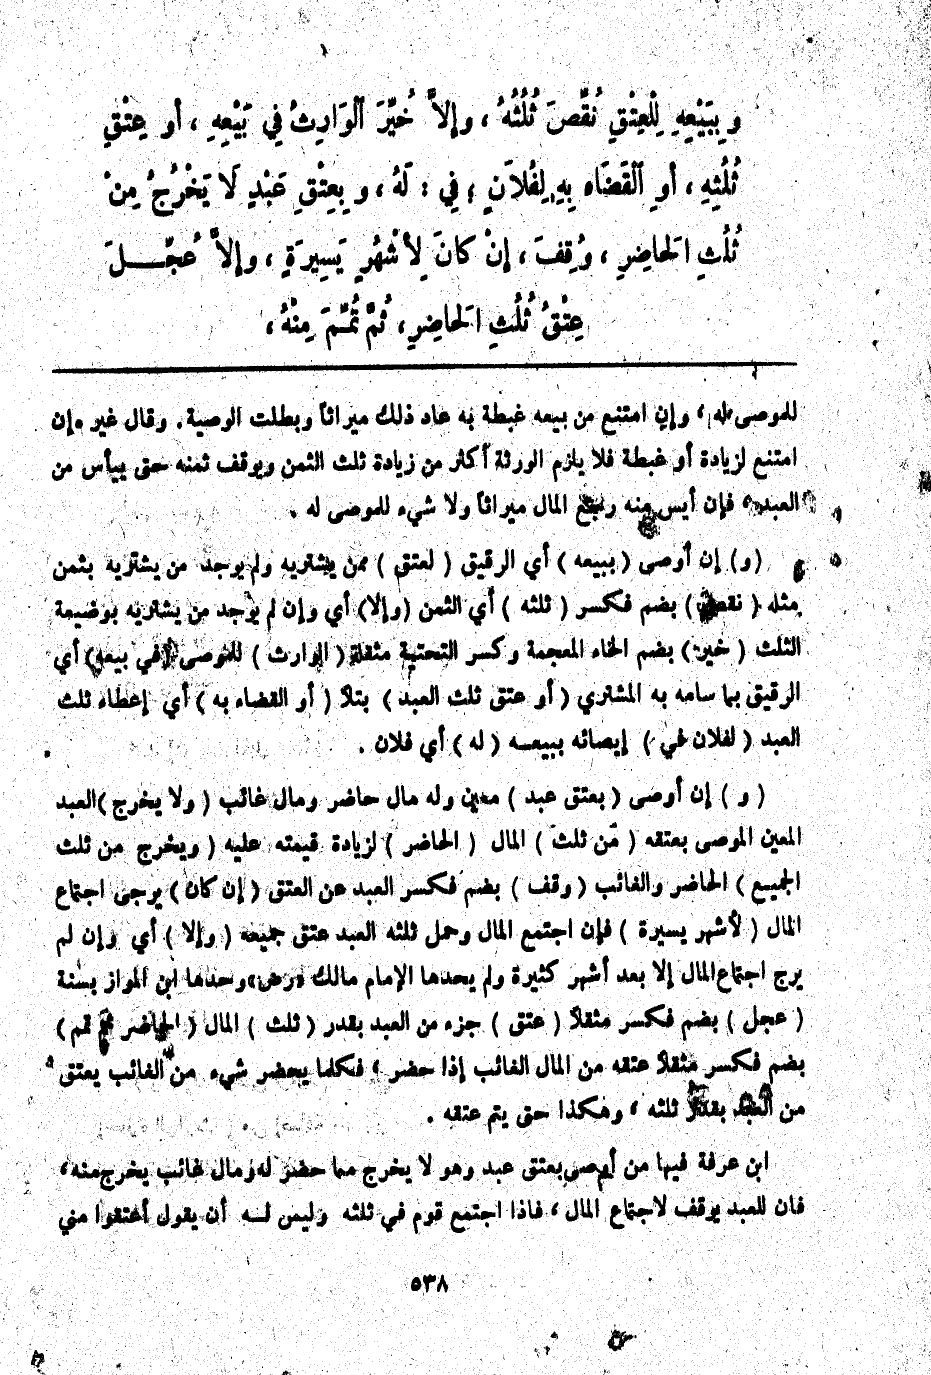 وبِبَيْعِهِ لِلْعِتْقِ نُقِّصَ ثُلُثُهُ ، وإلاَّ خُيِّرَ ٱلْوَارِثُ فِي بَيْعِهِ ، أو عِتْقِ
ثُلُثِهِ ، أوِ ٱلْقَضَاءِ بِهِ لِفُلاَنٍ ؛ فِي : لَهُ ، و بِعِتْقِ عَبْدٍ لَا يَخْرُجُ مِنْ
ثُلُثِ الَحاضِرِ ، وُقِفَ ، إنْ كانَ لِأشْهُرٍ يَسِيرَةٍ ، وإلاَّ عُجِّـــلَ
عِتْقُ ثُلُثِ الَحاضِرِ ، ثُمَّ تُمِّمَ مِنْهُ ،
للموصى له ، وإن امتنع من بيعه غبطة به عاد ذلك ميراثاً وبطلت الوصية . وقال غيره إن
امتنع لزيادة أو غبطة فلا يلزم الورثة أكثر من زيادة ثلث الثمن ويوقف ثمنه حتى ييأس من
العبد ، فإن أيس منه رجع المال ميراثاً ولا شيء للموصى له .
( و ) إن أوصى ( ببيعه ) أي الرقيق ( لعتق ) ممن يشتريه ولم يوجد من يشتريه بثمن
مثله ( نقص ) بضم فكسر ( ثلثه ) أي الثمن ( وإلا ) أي وإن لم يوجد من يشتريه بوضيعة
الثلث ( خير ) بضم الخاء المعجمة وكسر التحتية مثقلة ( الوارث ) للموصى ( في بيعه ) أي
الرقيق بما سامه به المشتري ( أو عتق ثلث العبد ) بتلا ( أو القضاء به ) أي إعطاء ثلث
العبد ( لفلان في ) إيصائه ببيعـــه ( له ) أي فلان .
( و ) إن أوصى ( بعتق عبد ) معين وله مال حاضر ومال غائب ( ولا يخرج ) العبد
المعين الموصى بعتقه ( من ثلث ) المال ( الحاضر ) لزيادة قيمته عليه ( ويخرج من ثلث
الجميع ) الحاضر والغائب ( وقف ) بضم فكسر العبد عن العتق ( إن كان ) يرجى اجتماع
المال ( لأشهر يسيرة ) فإن اجتمع المال وحمل ثلثه العبد عتق جميعه ( وإلا ) أي وإن لم
يرج اجتماع المال إلا بعد أشهر كثيرة ولم يحدها الإمام مالك «رض» وحدها ابن المواز بسنة
( عجل ) بضم فكسر مثقلاً ( عتق ) جزء من العبد بقدر ( ثلث ) المال ( الحاضر ثم تمم )
بضم فكسر مثقلاً عتقه من المال الغائب إذا حضر ، فكلما يحضر شيء من الغائب يعتق
من العبد بقدر ثلثه ، وهكذا حتى يتم عتقه .
ابن عرفة فيها من أوصى بعتق عبد وهو لا يخرج مما حضر له ومال غائب يخرج منه ،
فان للعبد يوقف لاجتماع المال ، فاذا اجتمع قوم في ثلثه وليس لــه أن يقول أعتقوا مني
٥٣٨